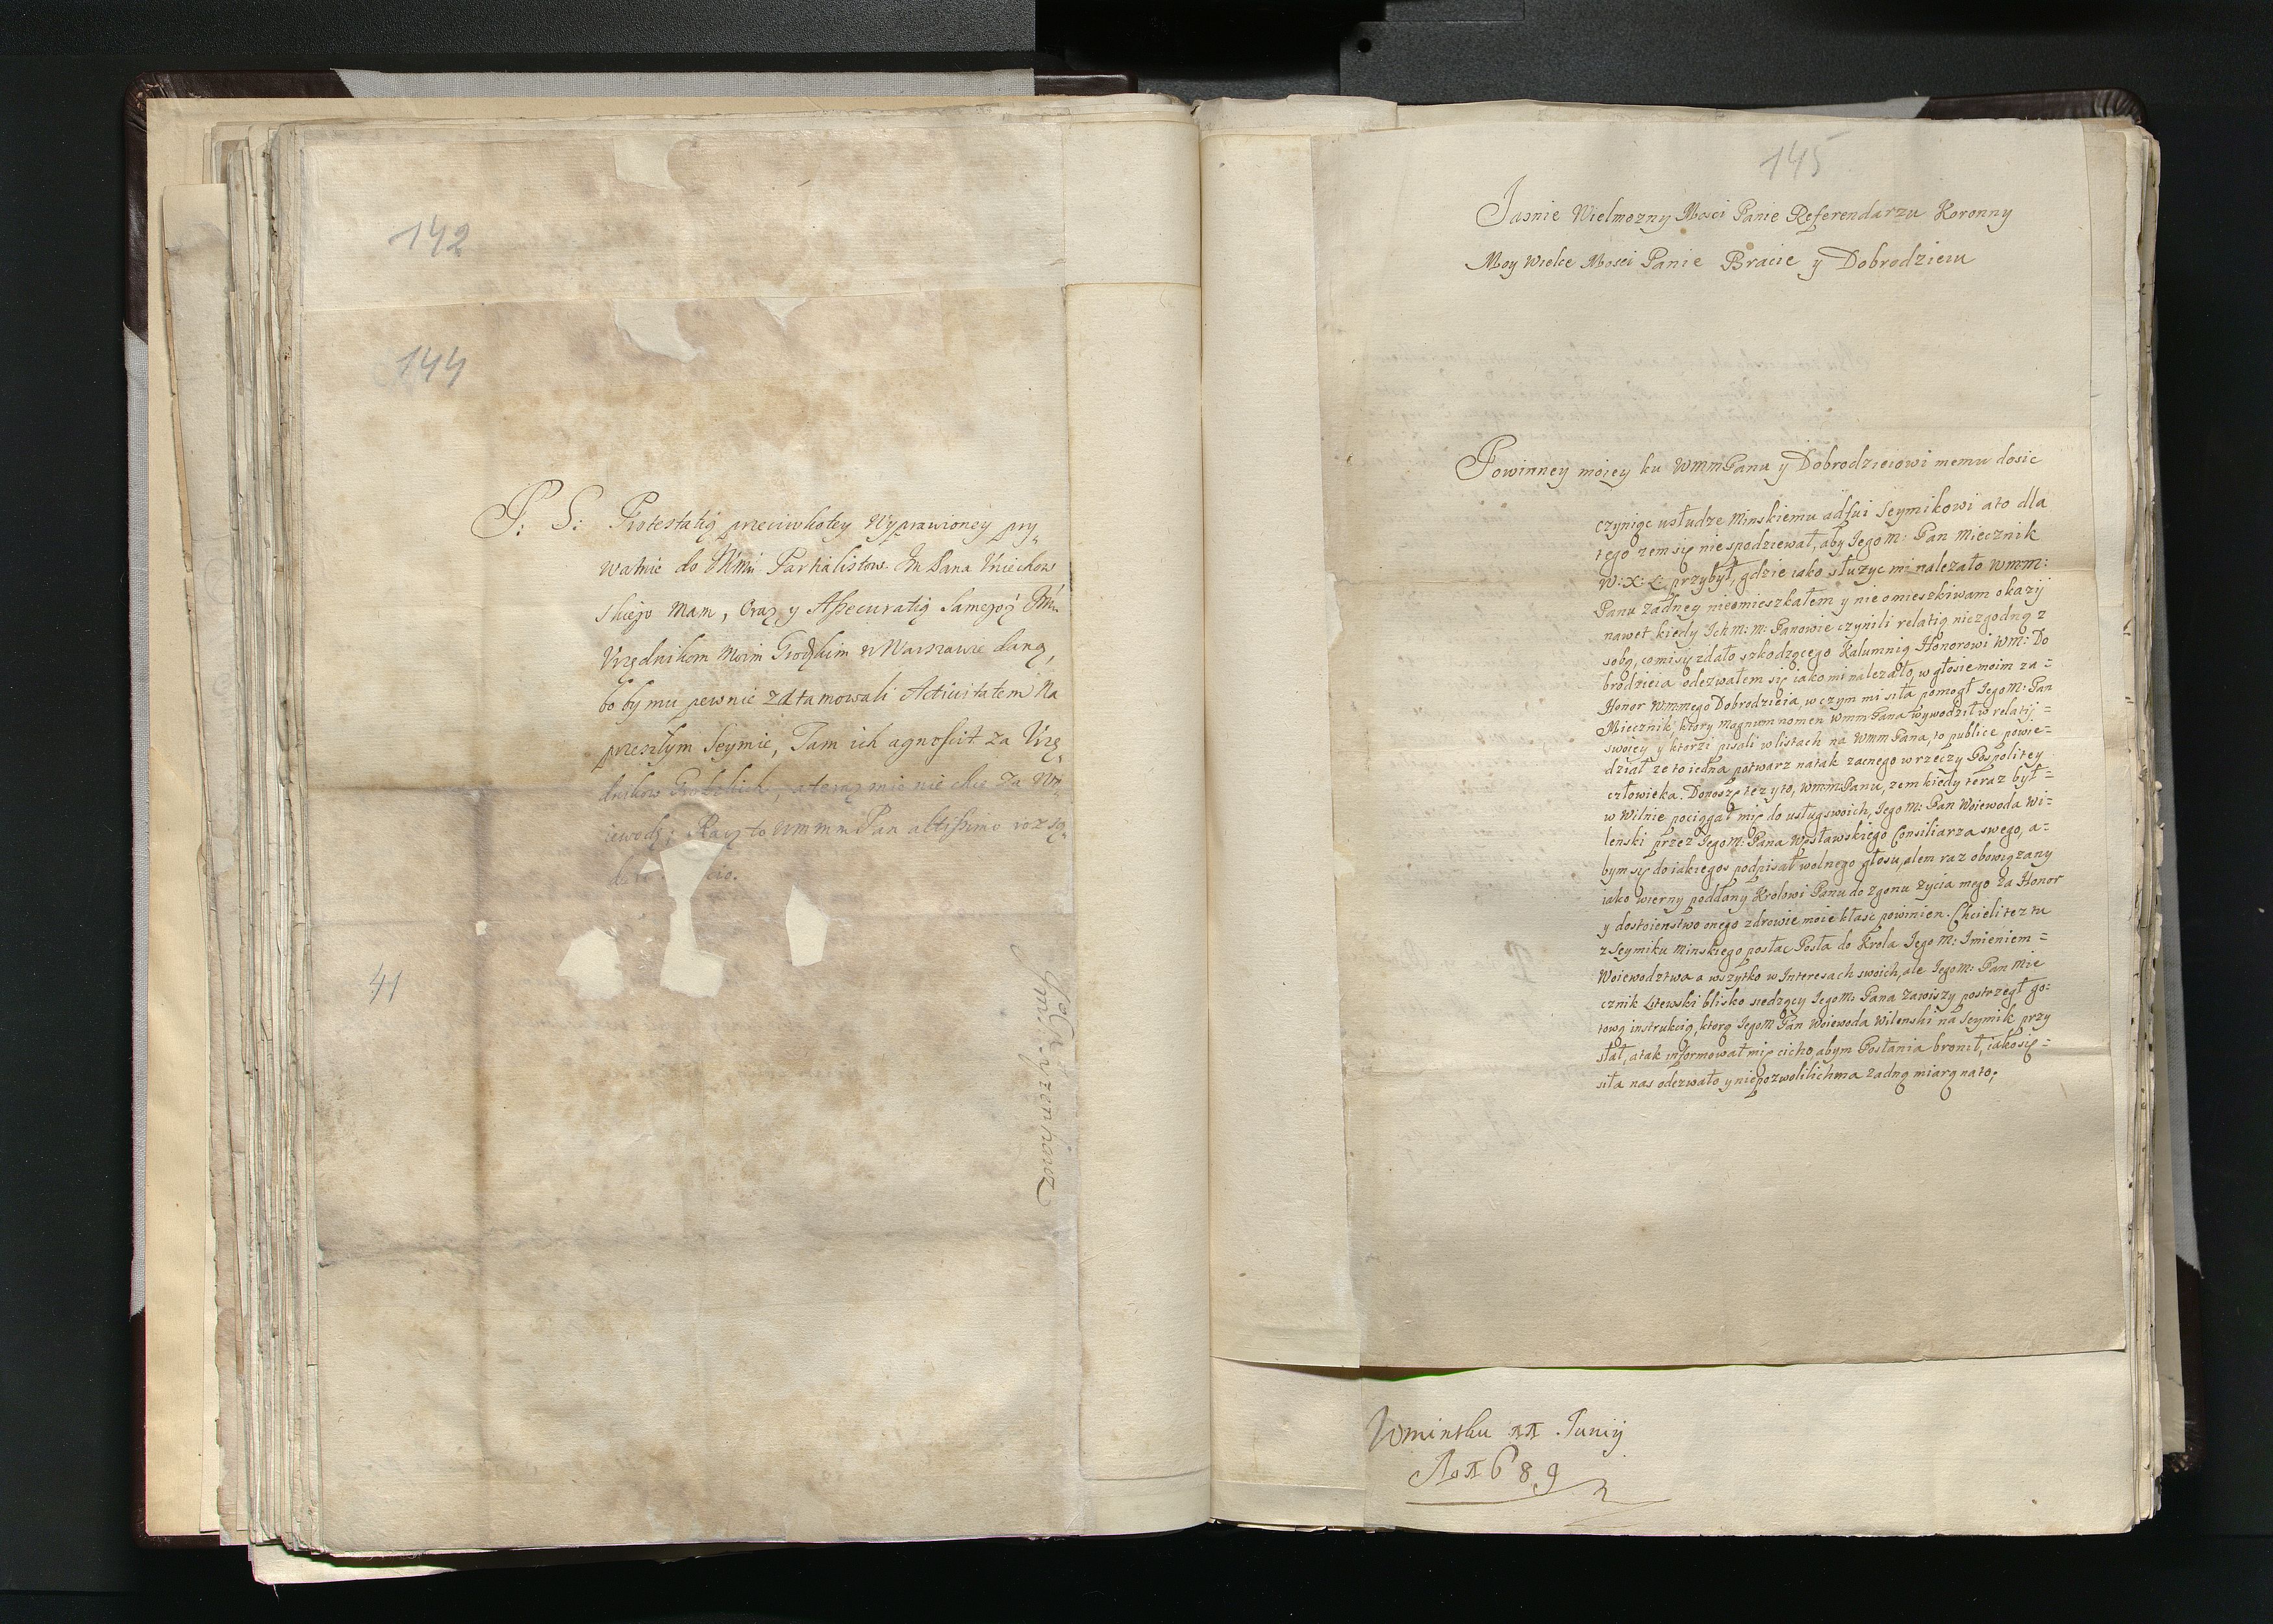 142
144
P. S: Protestatią przeciwko tey Wyprawioney pry„
watnie do Partialistow Im Pana Uniechow
skiego mam, Oraz y Assecuratią samegoż Im
Urzędnikom Moim Grodzkim w Warszawie daną,
bo by mu pewnie zatamowali Activitatem na
przeszłym Seymie, Tam ich agnoscit za Urzę„
dnikow Grodzkich, a teraz mie nie chce za Wo„
iewodę; Racz to WMMM Pan altissimo rozsą„
41
145
Jasnie Wielmozny Mosci Panie Referendarzu Koronny
Moy Wielce Mosci Panie Bracie y Dobrodzieiu
Powinney moiey ku WMMPanu y Dobrodzieiowi memu dosic
czyniąc usłudze Minskiemu adfui Seymikowi a to dla
tego żem się nie spodziewał, aby Jego M: Pan Miecznik
W: X: L: przybył, gdzie iako służyc mi należało WMM:
Panu żadney nieomieszkałem y nie omieszkiwam okazij
nawet kiedy Ich M: M: Panowie czynili relatią niezgodną z
sobą, co mi się zdało szkodzącego Kalumnią Honorowi WM: Do
brodzieia odezwałem się iako mi należało, w głosie moim za=
Honor WMMego Dobrodzieia, w czym mi siła pomogł Jego M: Pan
Miecznik, ktory Magnum nomen WMM Pana wywodził w relatij=
swoiey y ktorzi pisali w listach na WMM Pana, to publice powie=
dział że to iedna potwarz na tak zacnego w rzeczy Pospolitey
człowieka. Donoszę tez y to, WMMPanu, żem kiedy teraz był=
w Wilnie pociągał mię do usług swoich, Jego M: Pan Woiewoda Wi=
lenski przez Jego M: Pana Wosławskiego Consiliarza swego, a=
bym się do iakiegos podpisał wolnego głosu, alem raz obowiązany
iako wierny poddany Krolowi Panu do zgonu życia mego za Honor
y dostoienstwo onego zdrowie moie kłasc powinien. Chcieli tez tu
z Seymiku Minskiego posłac Posła do Krola Jego M: Imieniem=
Woiewodztwa a wszytko w Interesach swoich, ale Jego M: Pan Mie
cznik Litewski blisko siedzący Jego M: Pana Zawiszy postrzegł go=
tową instrukcią, ktorą Jego M Pan Woiewoda Wilenski na Seymik przy
słał, a tak informował mię cicho, abym Posłania bronił, iakosię=
siła nas odezwało y niepozwolilichma żadną miarą na to;
W minsku 11 Junij
Ao 1689